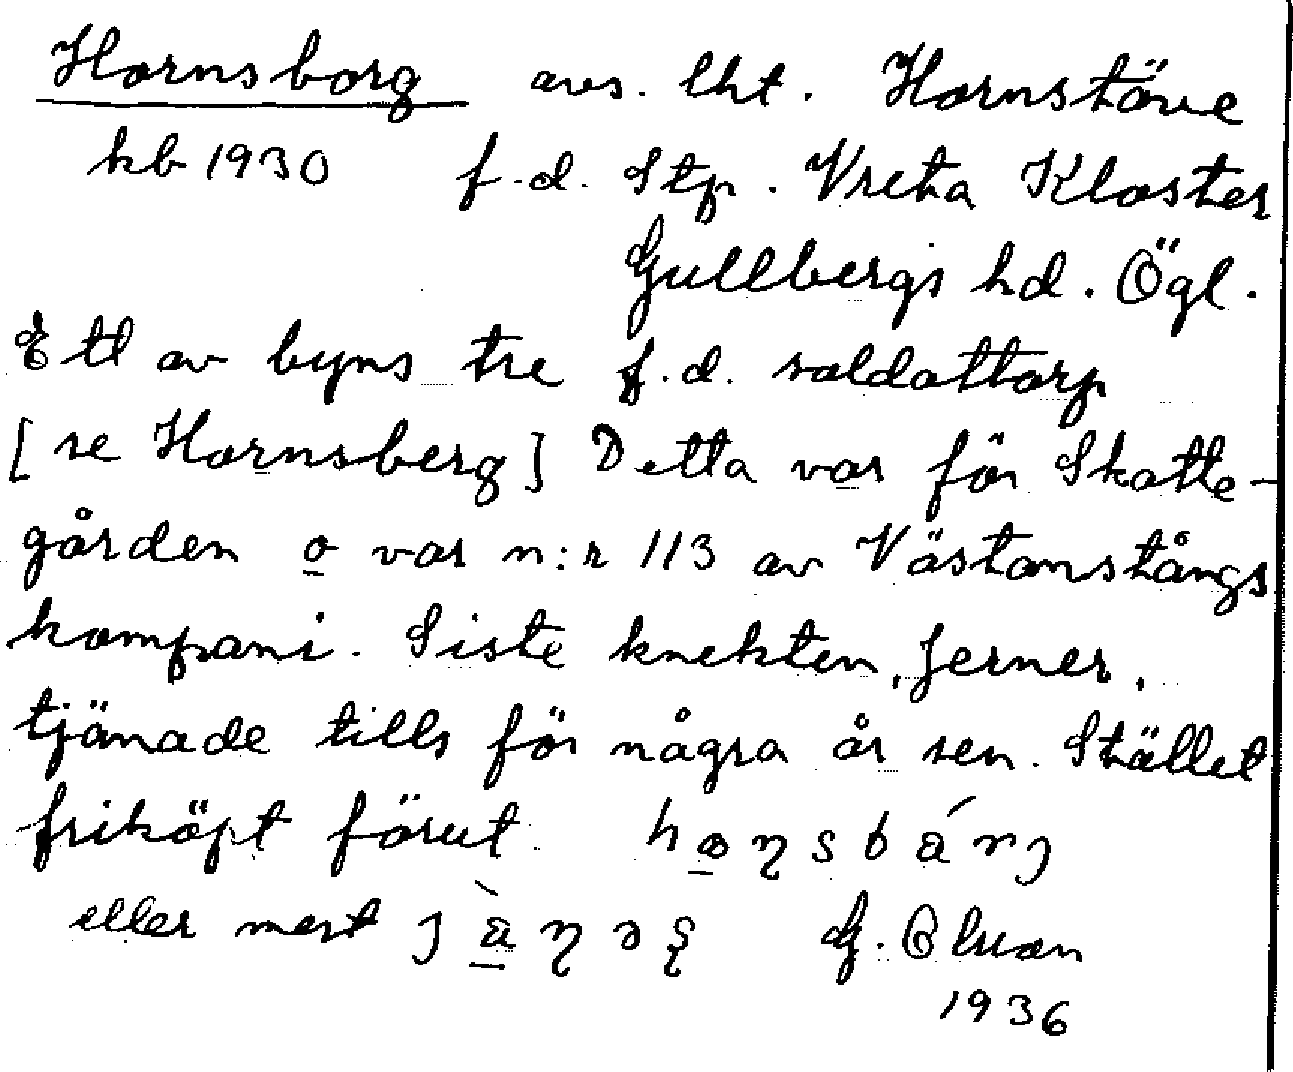 Hornsborg avs. lht. Hornstäve
kb 1930 f.d. Stp. Vreta Kloster
Gullbergs hd. Ögl.
Ett av byns tre f.d. soldattorp
[se Hornsberg] Detta var för Skatte-
gården o var n:r 113 av Västanstångs
kompani. Siste knekten, Jerner,
tjänade tills för några år sen. Stället
friköpt förut.
eller mest G.
1936